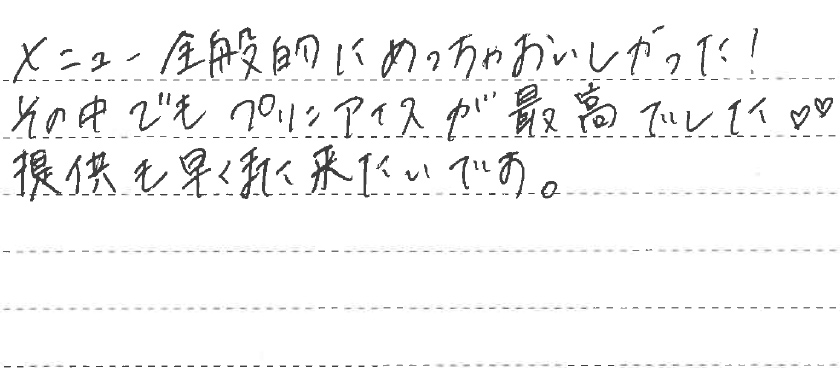 メニュー全般的にめっちゃおいしかった!
その中でもプリンアイスが最高でした♡♡
提供も早くまた来たいです。